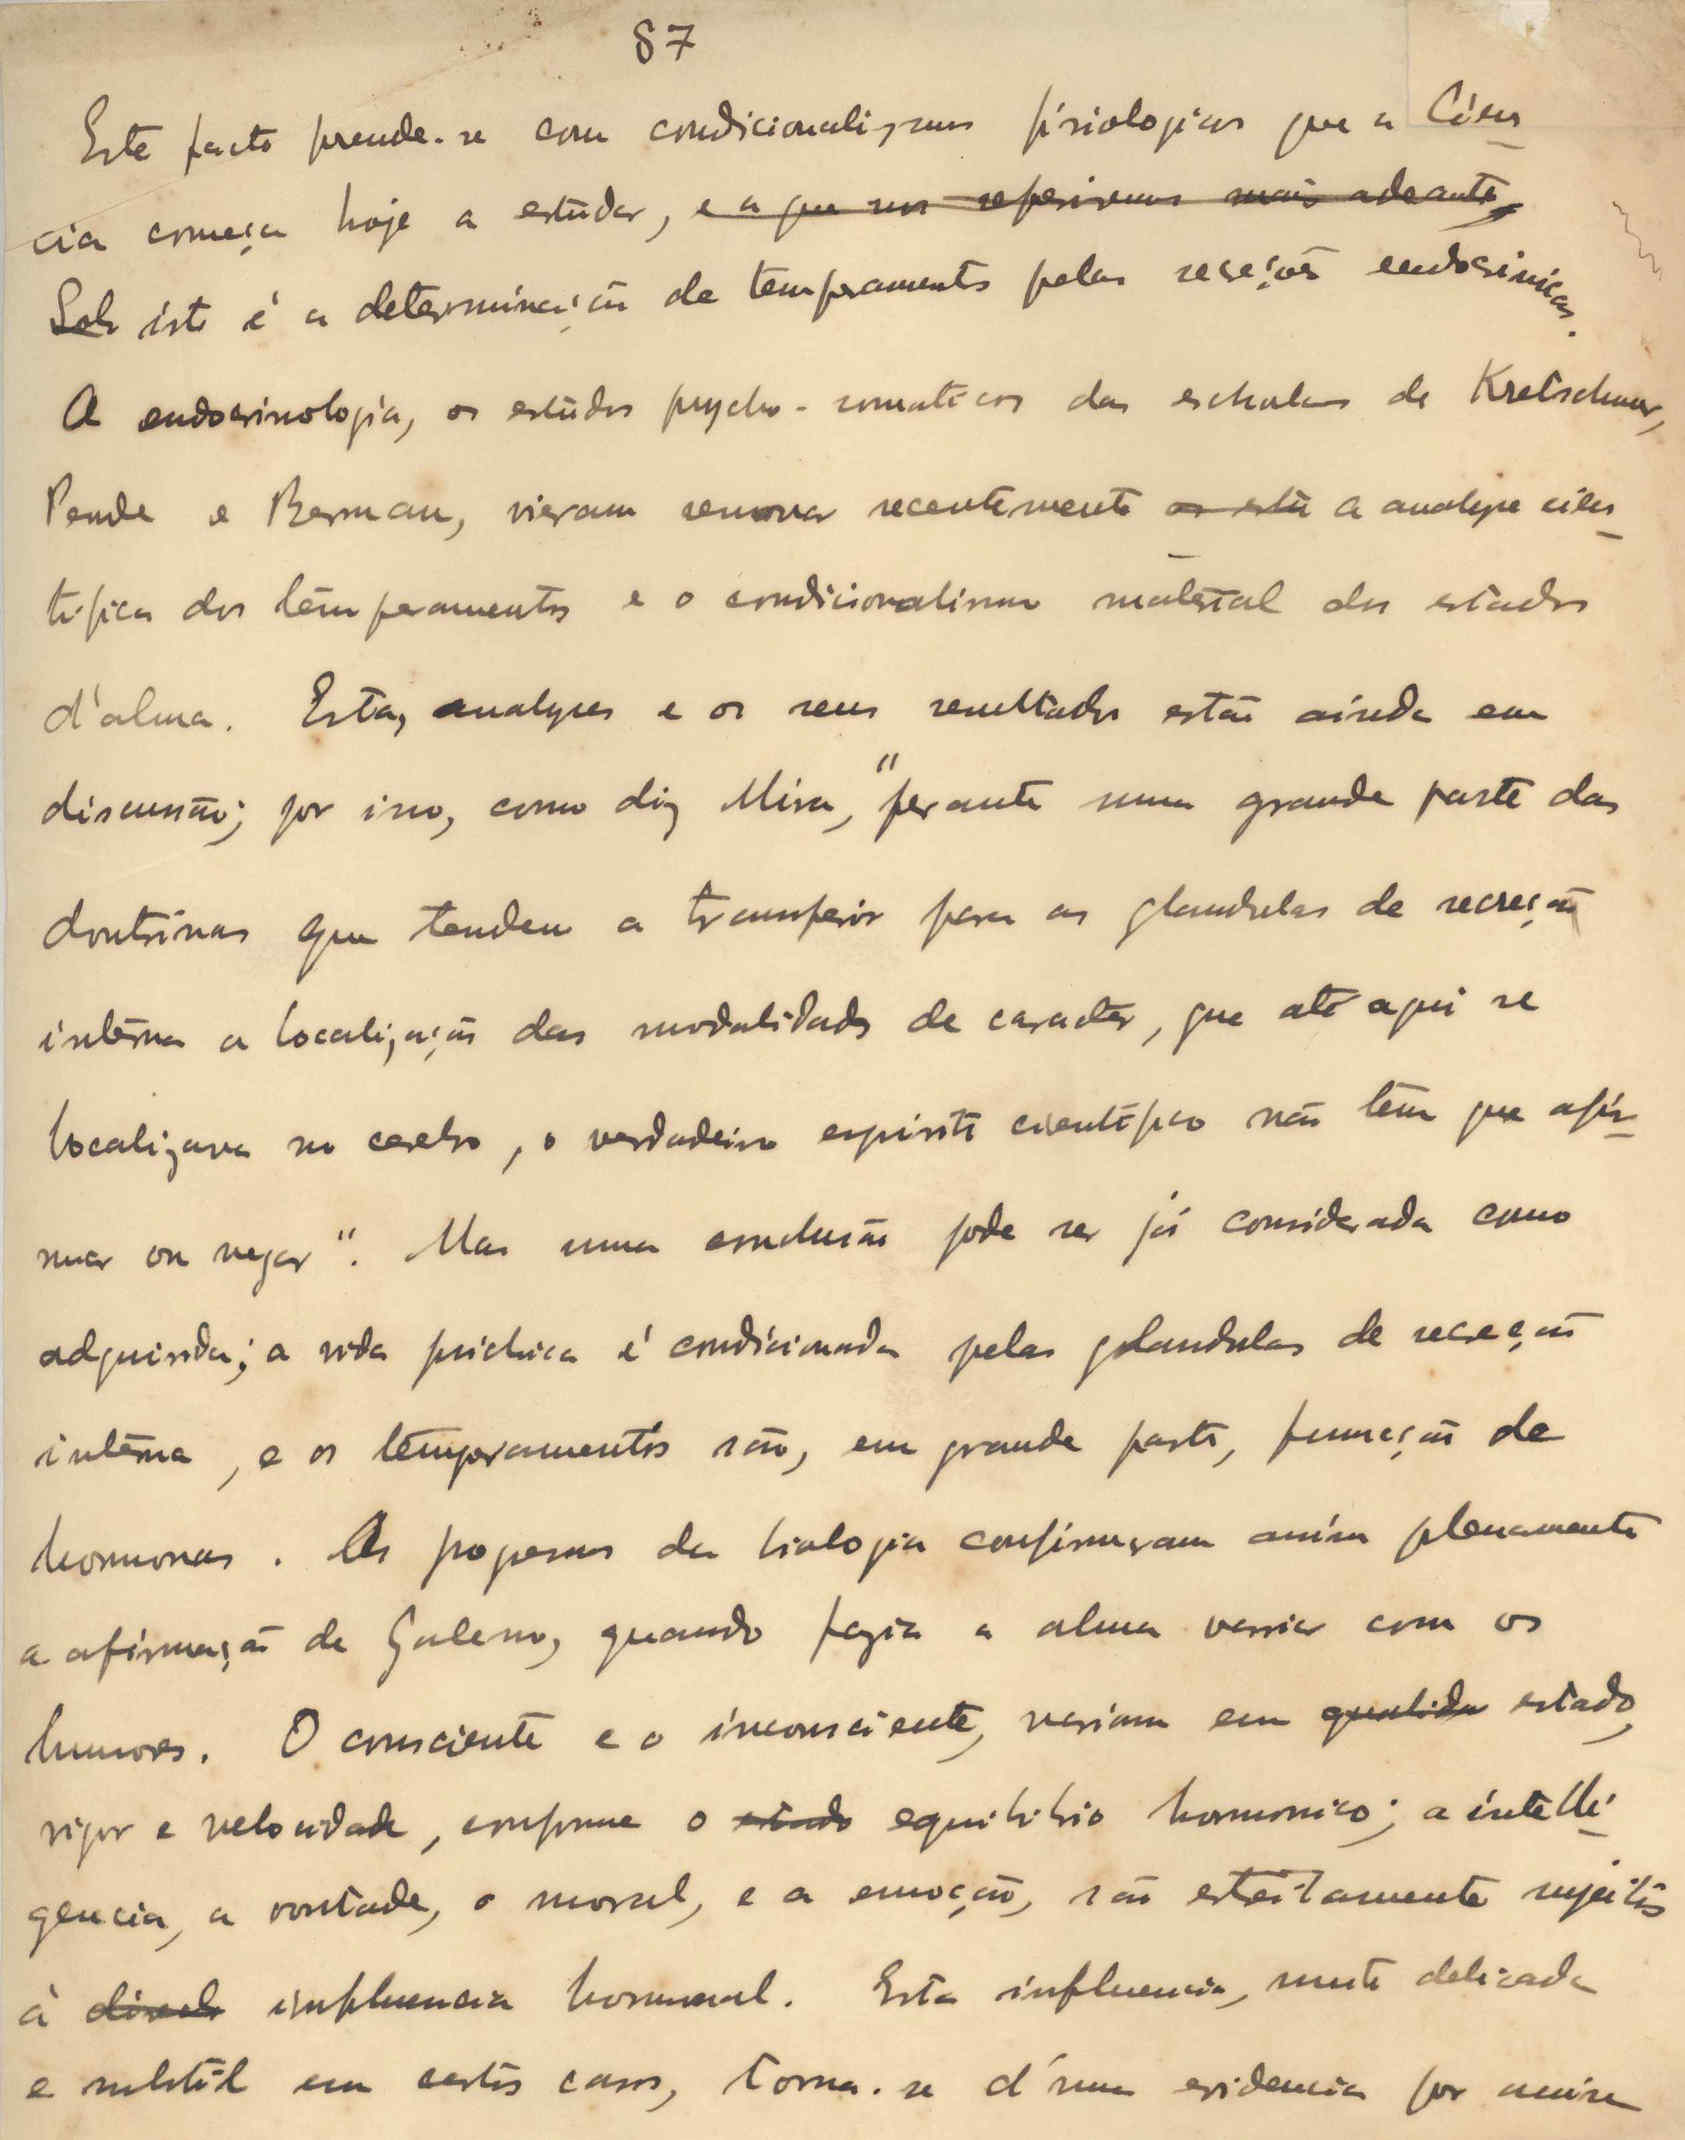 87
Este facto prende-se com condicionalismos fisiologicos que a Ciên-
cia começa hoje a estudar, e a que nos referiremos mais adeante,
isto é a determinação de temperamento pelas secreções endocrinicas.
A endocrinologia, os estudos psycho-somaticos das escholas de Kretschmer,
Pende e Berman, vieram renovar recentemente os estu a analyse cien-
tifica dos temperamentos e o condicionalismo material dos estados
d'alma. Estas analyses e os seus resultados estão ainda em
discussão; por isso, como diz Mira, "perante uma grande parte das
doutrinas que tendem a transferir para as glandulas de secreção
interna a localização das modalidades de caracter, que até aqui se
localizava no cerebro, o verdadeiro espirito cientifico não tem que afir-
mar ou negar". Mas uma conclusão pode ser já considerada como
adquirida; a vida psichica é condicionada pelas glandulas de secreção
interna, e os temperamentos são, em grande parte, funcção de
hormonas. Os progressos da biologia confirmaram assim plenamente
a afirmação de Galeno, quando fazia a alma variar com os
humores. O consciente e o inconsciente, variam em qualida estado,
vigor e velocidade, conforme o estado equilibrio hormonico; a intelli-
gencia, a vontade, o moral, e a emoção, são estreitamente sujeitos
à influencia hormonal. Esta influencia, muito delicada
e subtil em certos casos, torna-se d'uma evidencia por assim